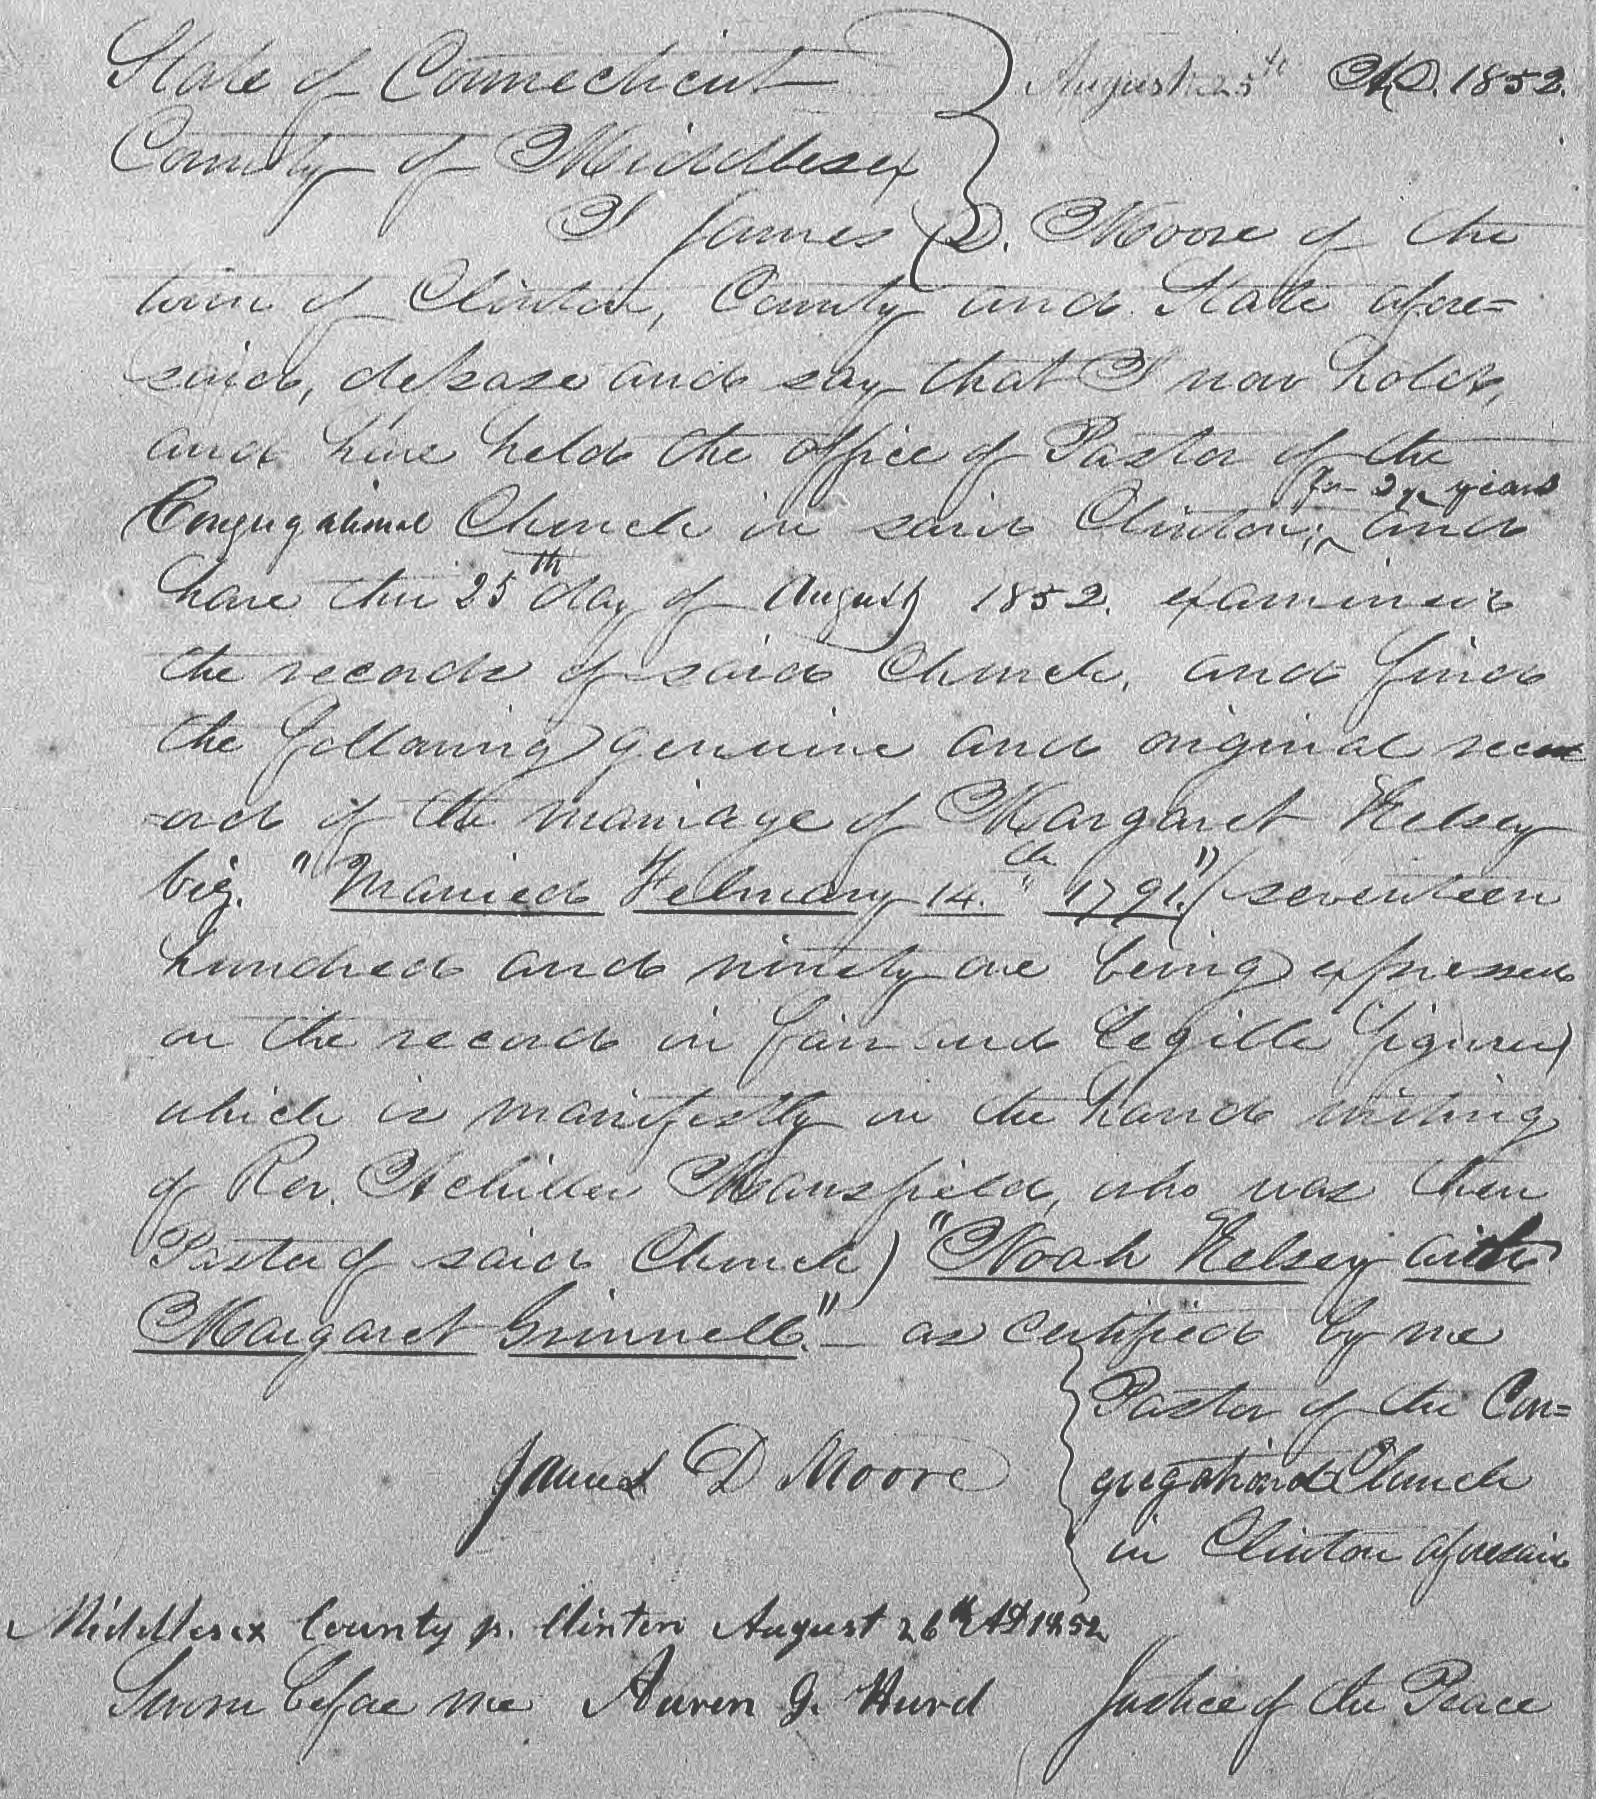 State of Connecticut } August 25th A.D. 1852.
County of Middlesex
I James D. Moore of the
town of Clinton, County and State afore=
said, depose and say that I now hold,
and have held the office of Pastor of the
for 2 years
Congregational Church in said Clinton; and
have this 25th day of August 1852. examined
the records of said Church, and find
the following genuine and original rec
-ord of the marriage of Margaret Kelsey
viz. "Married February 14.th 1791." (seventeen
hundred and ninety one being expressed
on the record in fair and legible figures)
which is manifestly in the hand writing
of Rev. Achilles Mansfield, who was then
Pastor of said Church) "Noah Kelsey with
Margaret Grinnell." — as certified by me
Pastor of the Con=
James D Moore } gregational Church
in Clinton aforesaid
Middlesex County ss. Clinton August 26th AD 1852
Sworn before me Auren G. Hurd Justice of the Peace